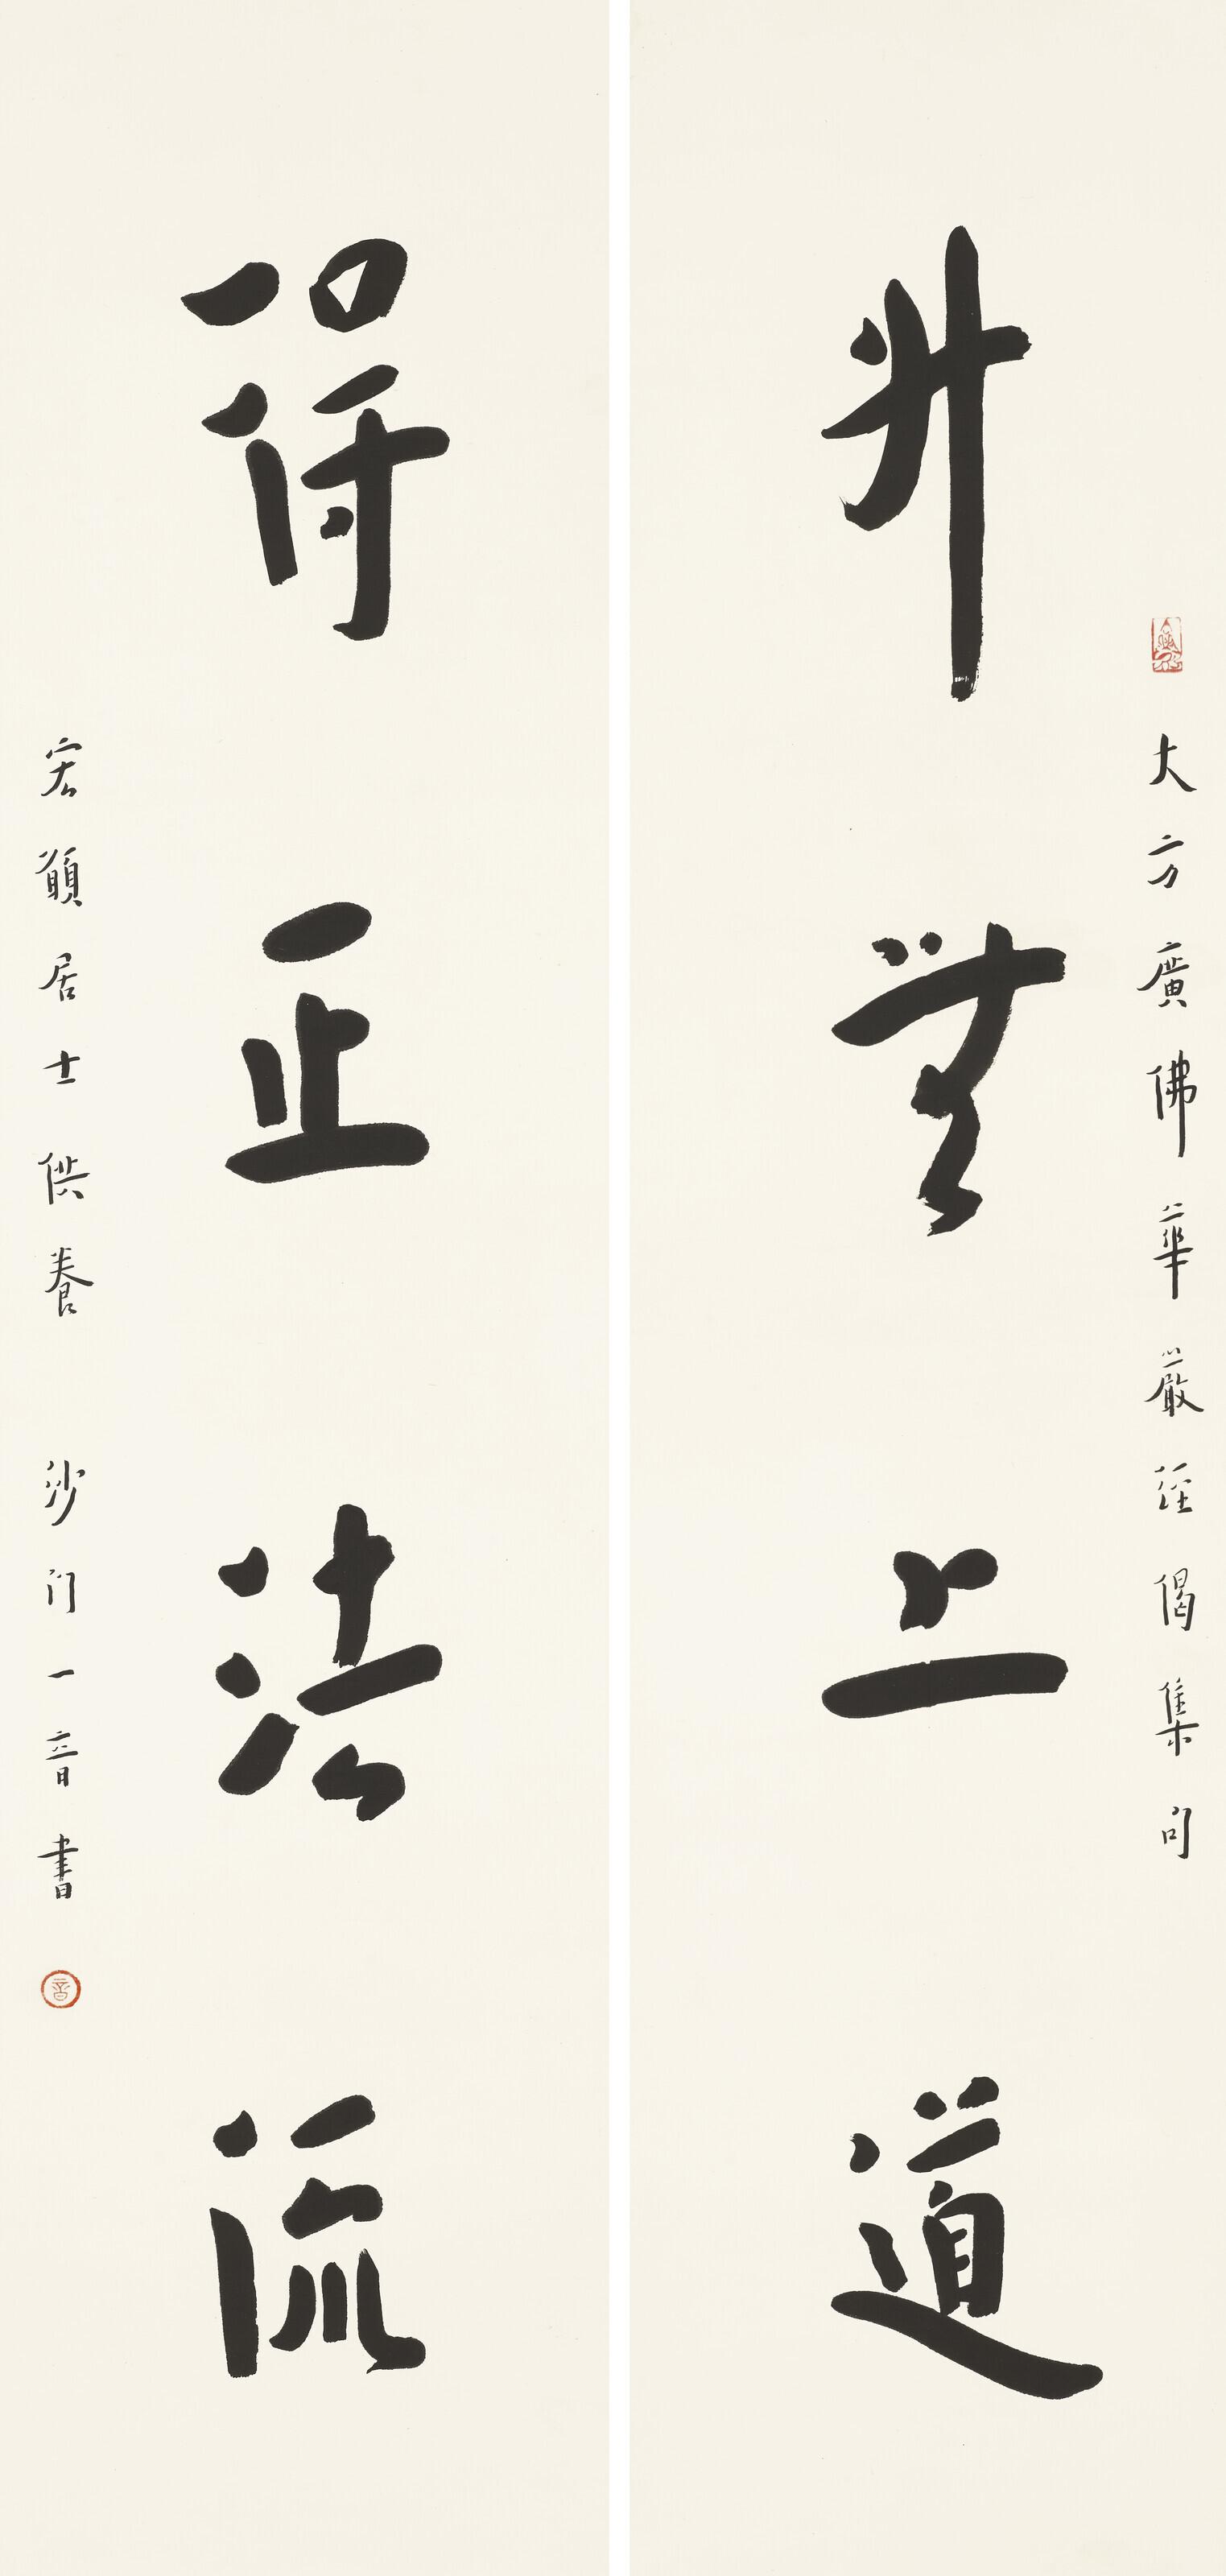 大方廣佛華嚴經偈集句
升無上道
得正法流
宏願居士供養 沙门一音書